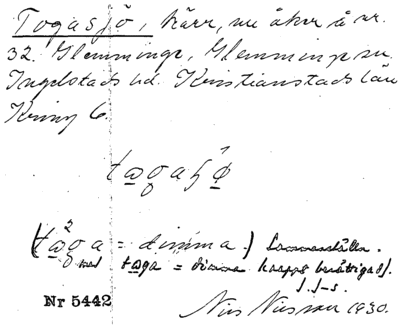 Togasjö, kärr, nu åker å nr.
32. Glemminge, Glemminge sn
Ingelstads hd. Kristianstads län
Kring 6.
(tɑga = dimma.) Sammanställn.
med tåga = dimma knappt berättigad).
J. J-s.
Nr 5442
Nils Nilsson 1930.